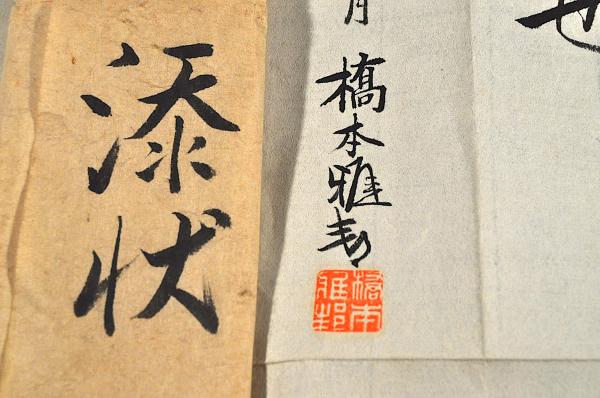 也
月 橋本雅邦
橋本
雅邦
添状